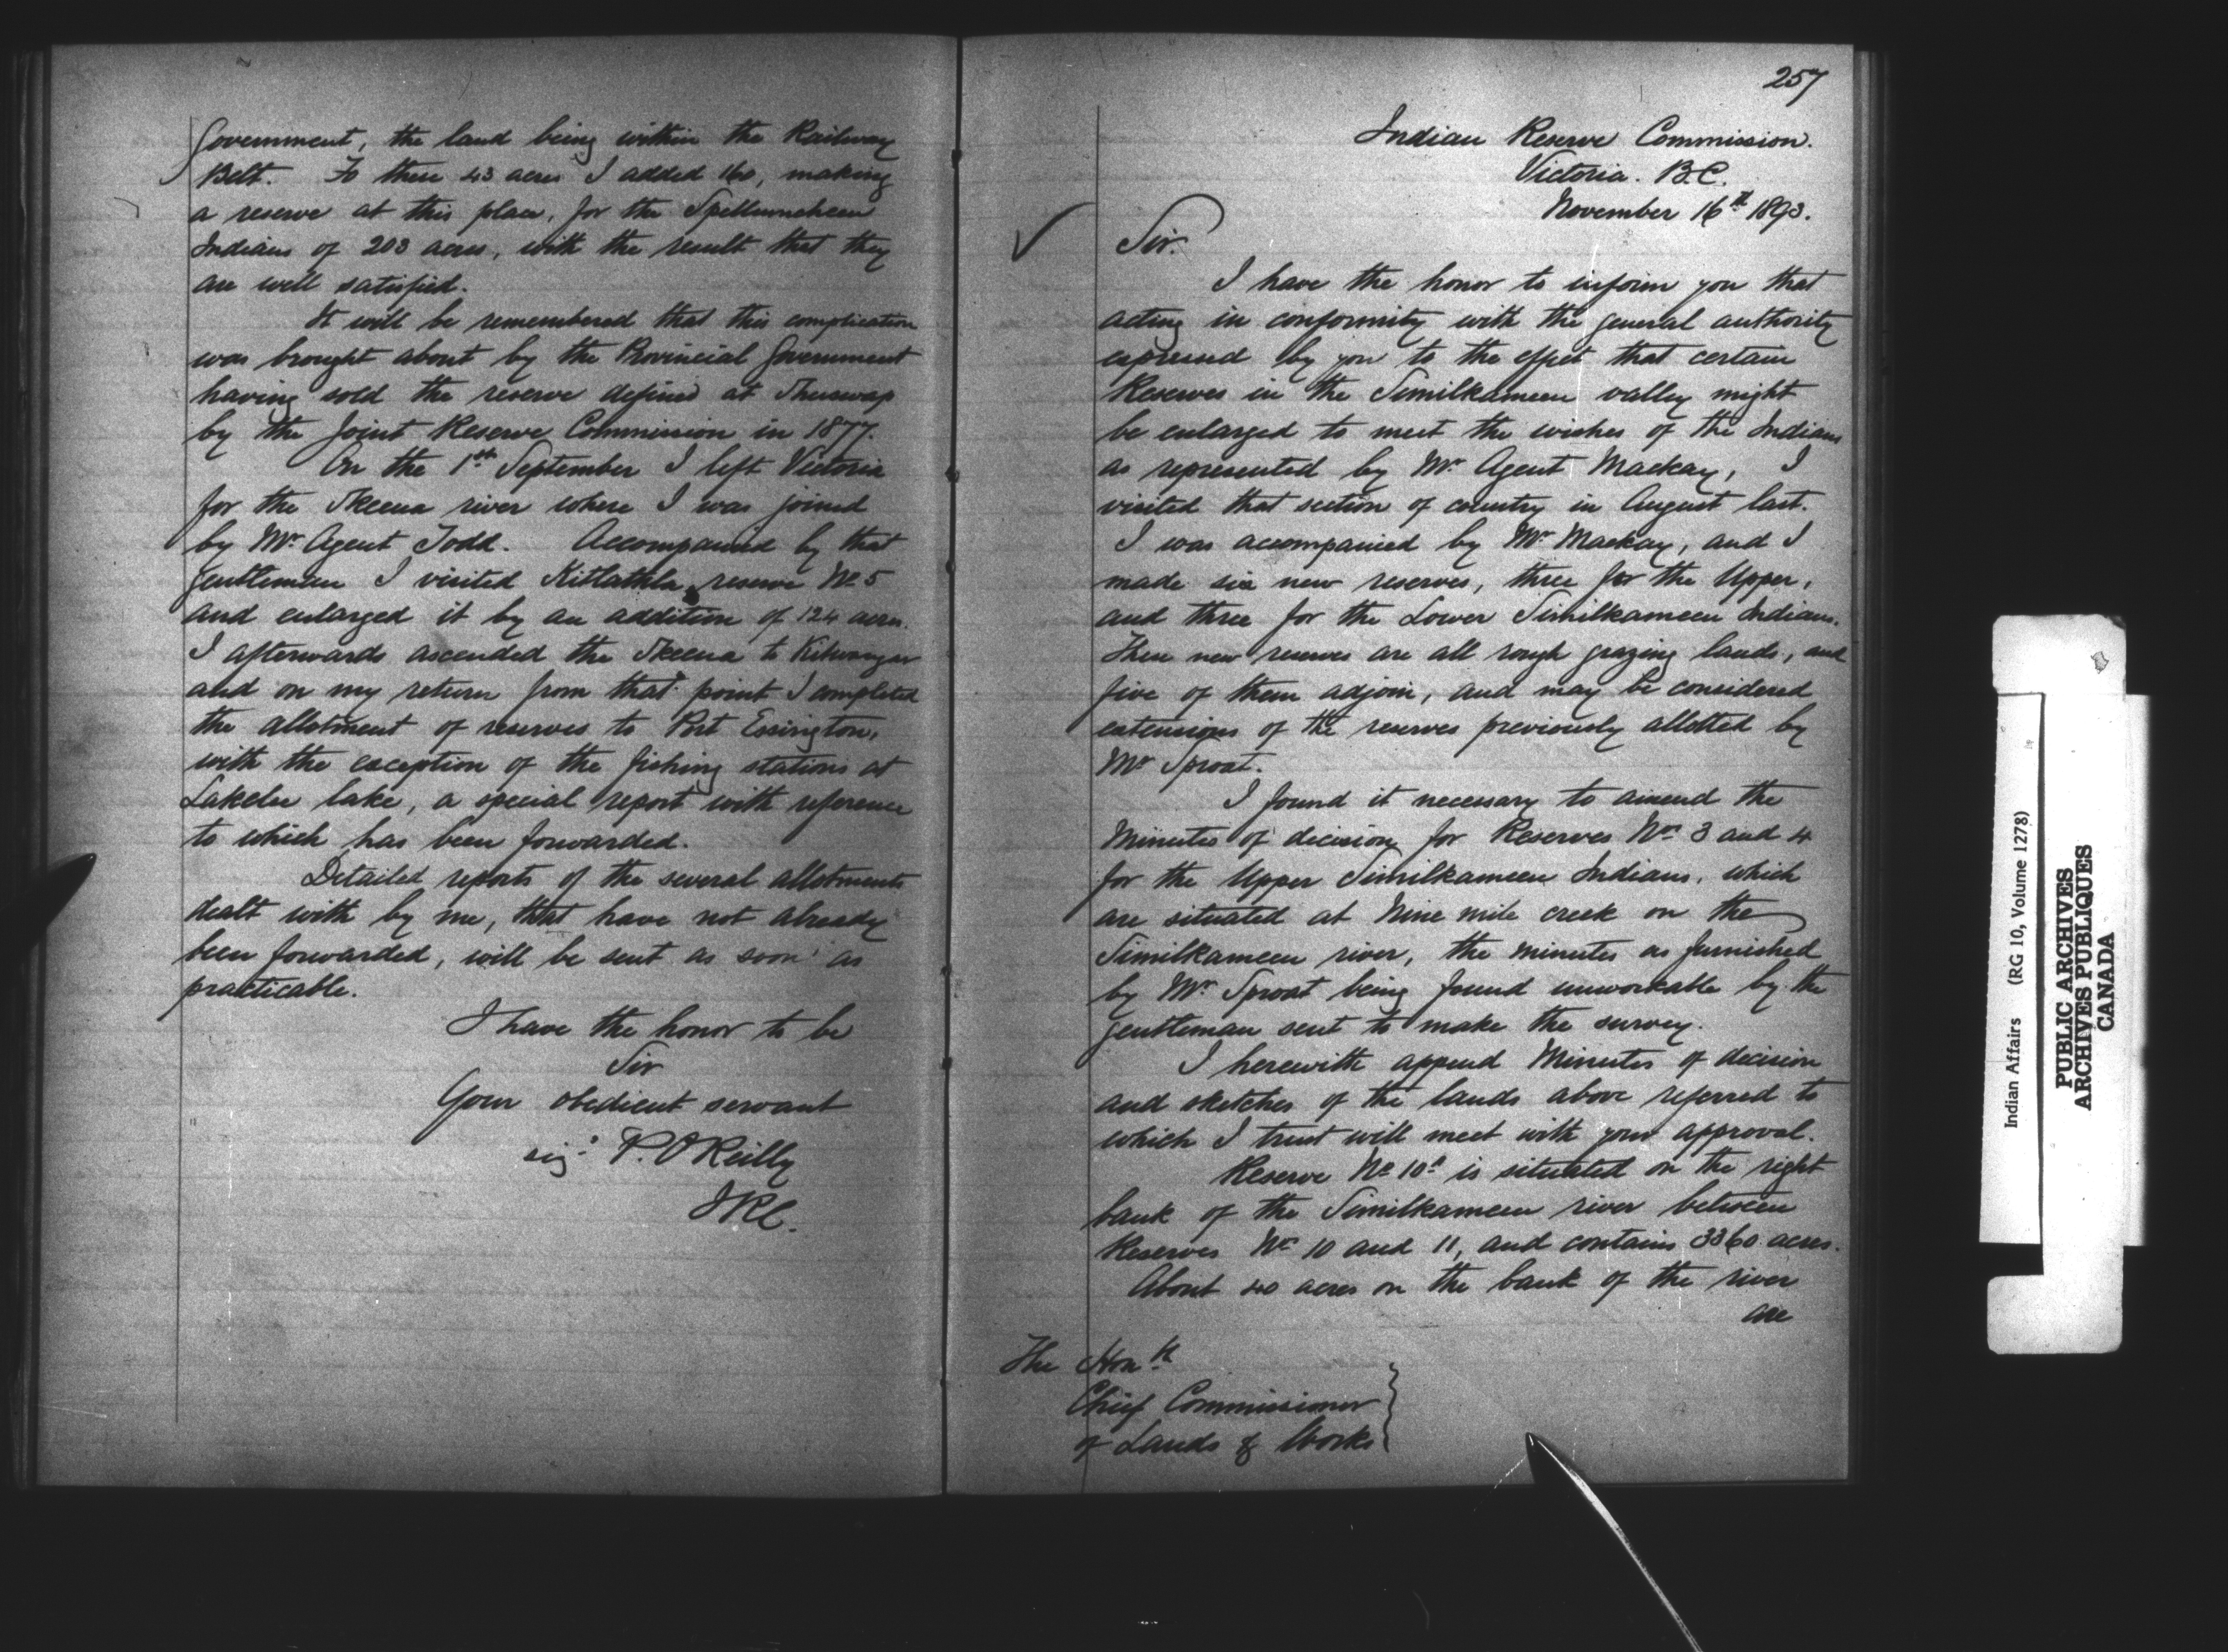 Government, the land being within the Railway
Belt. To these 43 acres I added 160, making
a reserve at this place, for the Spellumcheen
Indians of 203 acres, with the result that they
are well satisfied.
It will be remembered that this complication
was brought about by the Provincial Government
having sold the reserve defined at Shuswap
by the Joint Reserve Commission in 1877.
On the 1st September I left Victoria
for the Skeena river where I was joined
by Mr. Agent Todd. Accompanied by that
gentleman I visited Kitlathla reserve No 5
and enlarged it by an addition of 124 acres.
I afterwards ascended the Skeena to Kitwangar
and on my return from that point I completed
the allotment of reserves to Port Essington,
with the exception of the fishing stations at
Lakelse lake, a special report with reference
to which has been forwarded.
Detailed reports of the several allotments
dealt with by me, that have not already
been forwarded, will be sent as soon as
practicable.
I have the honor to be
Sir
Your obedient servant
sigd P. O'Reilly
IRC.
257
Indian Reserve Commission.
Victoria. B.C.
November 16th 1893.
Sir.
I have the honor to inform you that
acting in conformity with the general authority
expressed by you to the effect that certain
Reserves in the Similkameen valley might
be enlarged to meet the wishes of the Indians
as represented by Mr. Agent Mackay, I
visited that section of country in August last.
I was accompanied by Mr. Mackay, and I
made six new reserves, three for the Upper,
and three for the Lower Similkameen Indians.
These new reserves are all rough grazing lands, and
five of them adjoin, and may be considered
extensions of the reserves previously allotted by
Mr Sproat.
I found it necessary to amend the
Minutes of decision for Reserves Nos 3 and 4
for the Upper Similkameen Indians, which
are situated at Nine mile creek on the
Similkameen river, the minutes as furnished
by Mr. Sproat being found unworkable by the
gentleman sent to make the survey.
I herewith append Minutes of decision
and sketches of the lands above referred to
which I trust will meet with your approval.
Reserve No 10a is situated on the right
bank of the Similkameen river between
Reserves Nos 10 and 11, and contains 3360 acres.
About 40 acres on the bank of the river
are
The Honble
Chief Commissioner
of Lands & Works
Indian Affairs (RG 10, Volume 1278)
PUBLIC ARCHIVES
ARCHIVES PUBLIQUES
CANADA